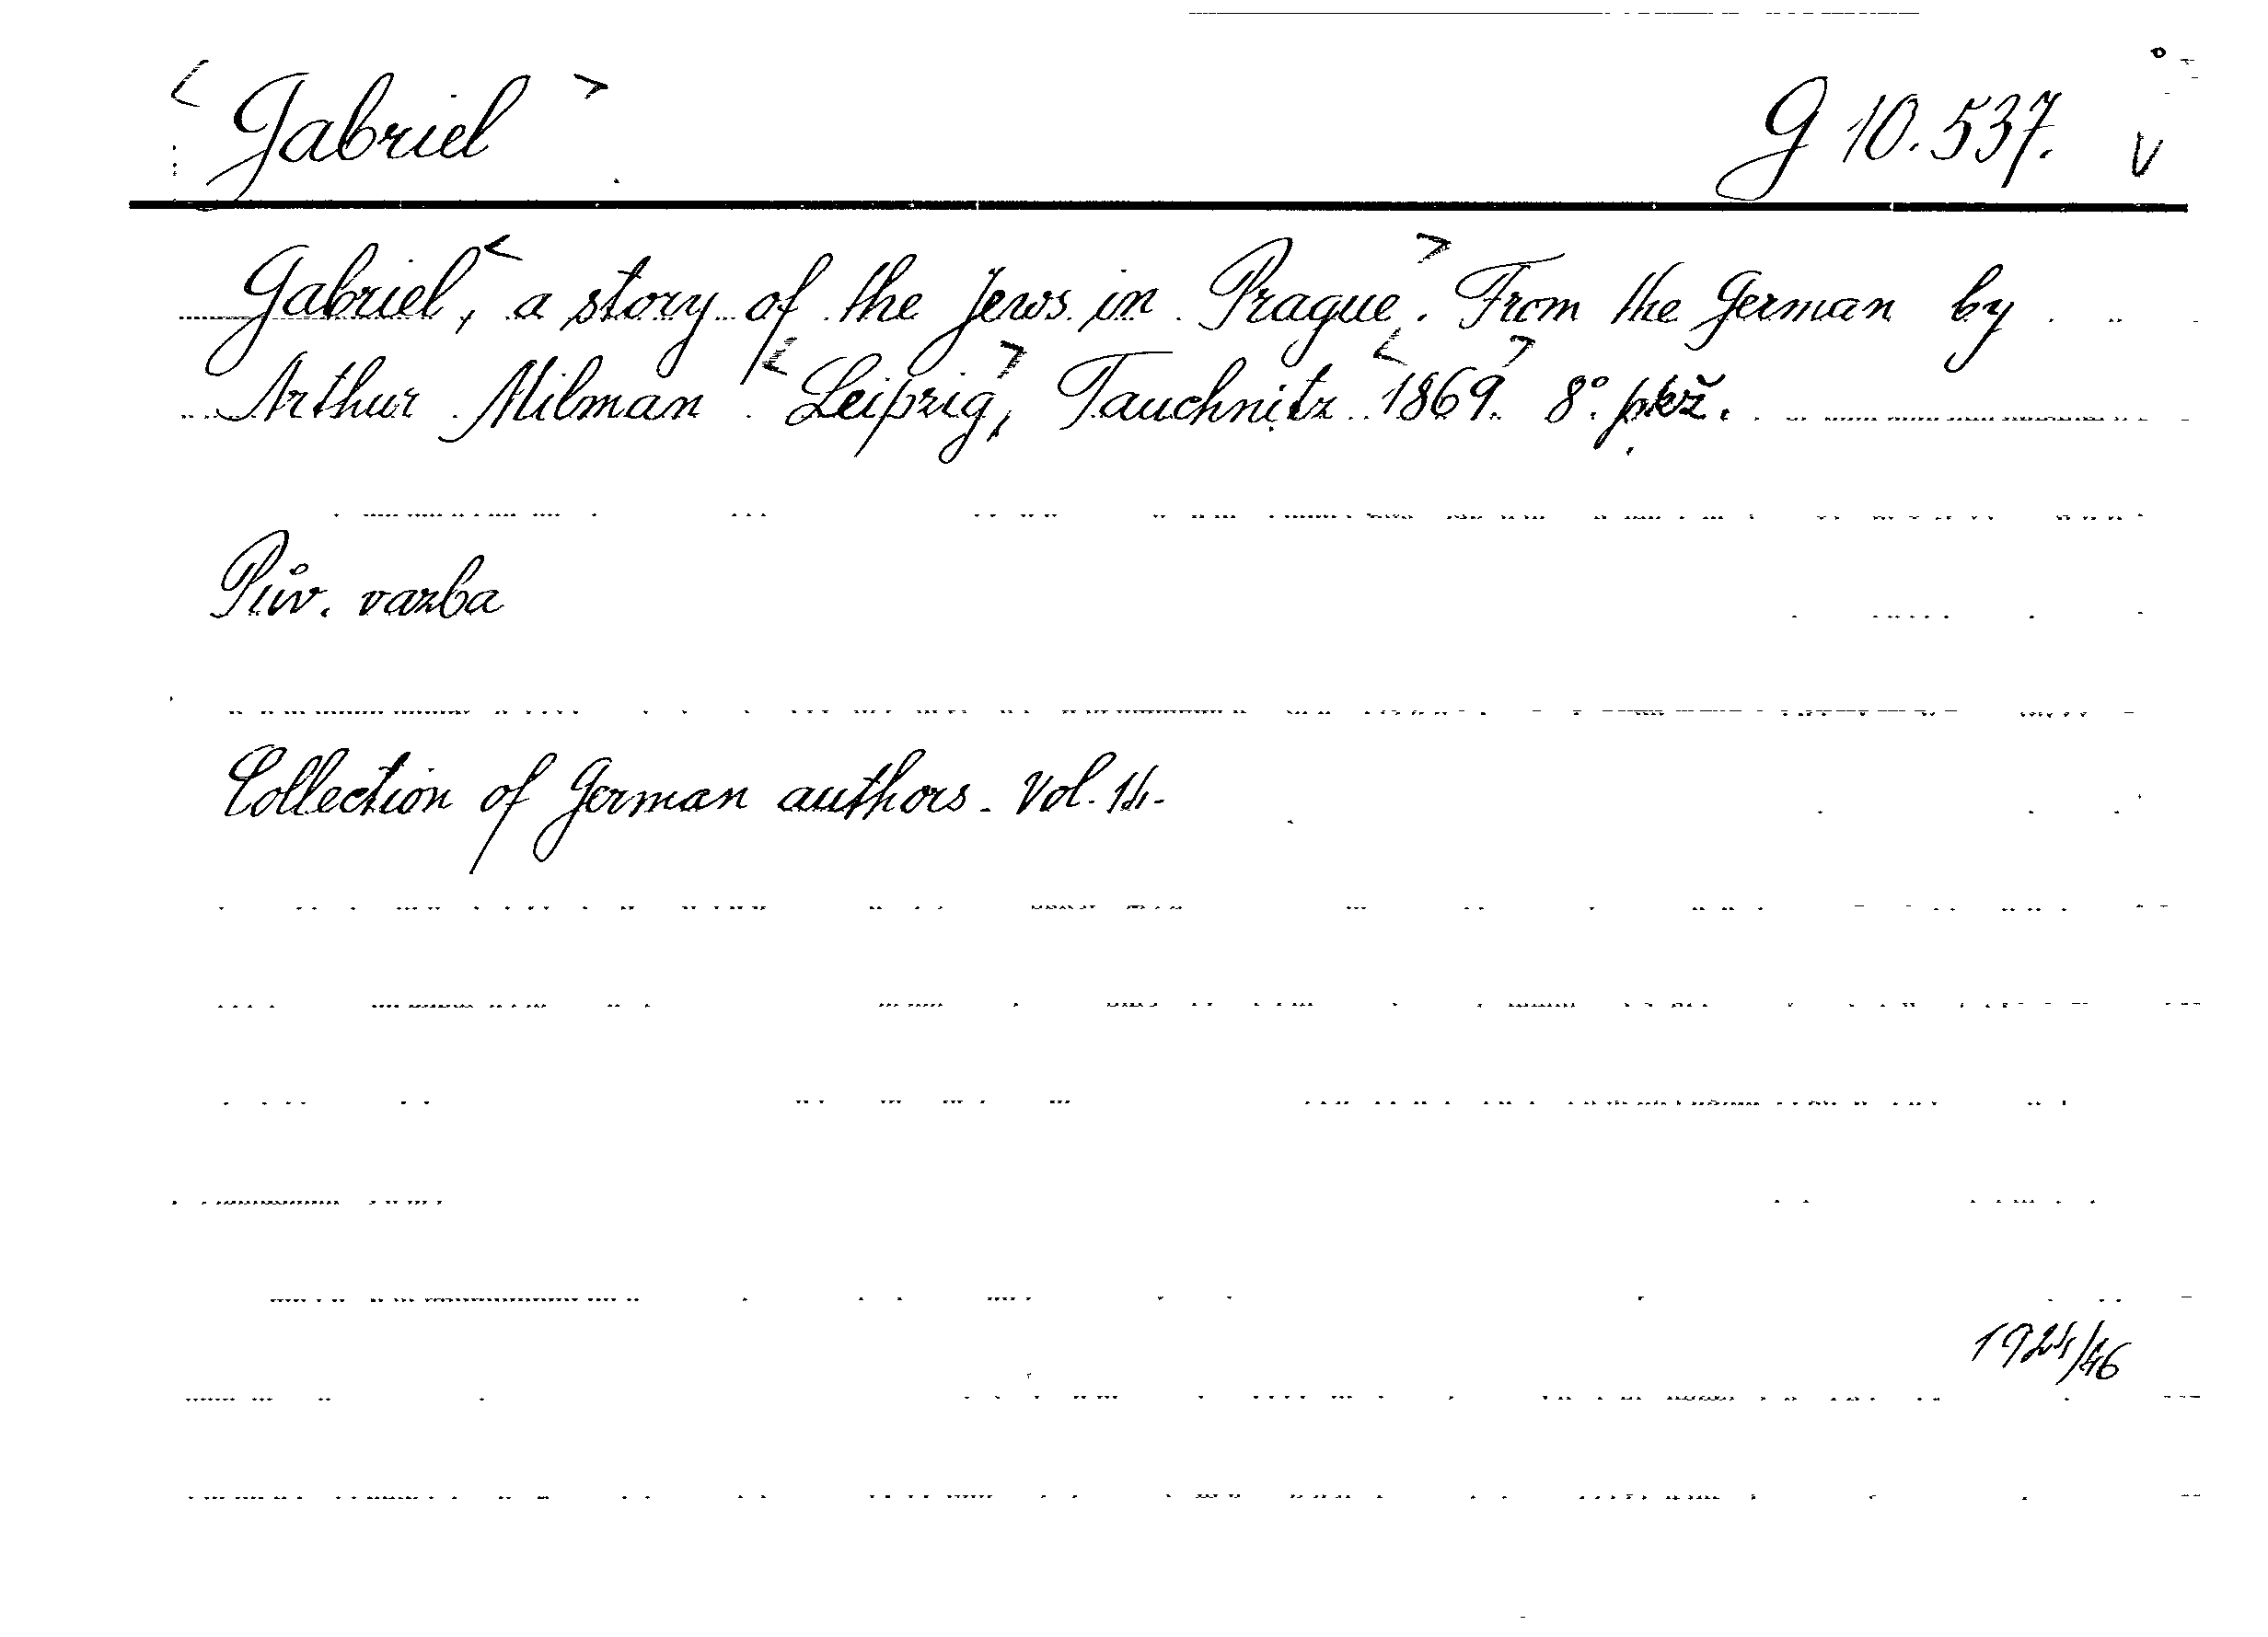 < Gabriel > G 10.537. V
Gabriel, < a story of the Jews in Prague >. From the German by
Arthur Milman. < Leipzig >, Tauchnitz < 1869 > 8°. pkž.
Pův. vazba
Collection of German authors. Vol. 14.
1924/46